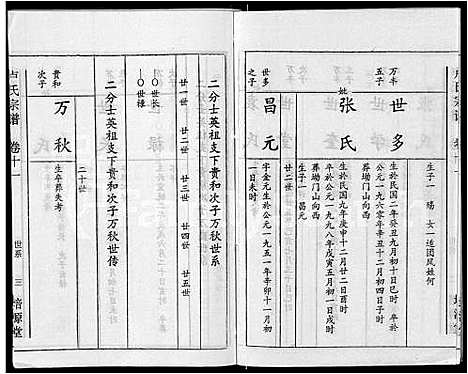 生子一 錫 女一適团凤姓何
万丰
五子
世多
生於民国二年癸丑九月初十日巳时 卒於
公元一九六〇年庚子辛丑十二月初四日子时
葬塆门山向西
妣
张氏
生於民国九年庚申十二月廿二日酉时
公元一九九八年戊寅五月初一日戌时
葬塆门山向西
生子一 昌元
世多
之子
昌元
廿二世
字金元生於公元一九五一年辛卯十一月初
一日未时
二分士英祖支下贵和次子万秋世系
廿一世 廿二世 廿三世 廿四世 廿五世
世长
世禄
二分士英祖支下贵和次子万秋世传
贵和
次子
万秋
二十世
生卒葬失考
卢氏宗谱 卷十一
世系 三
培源堂